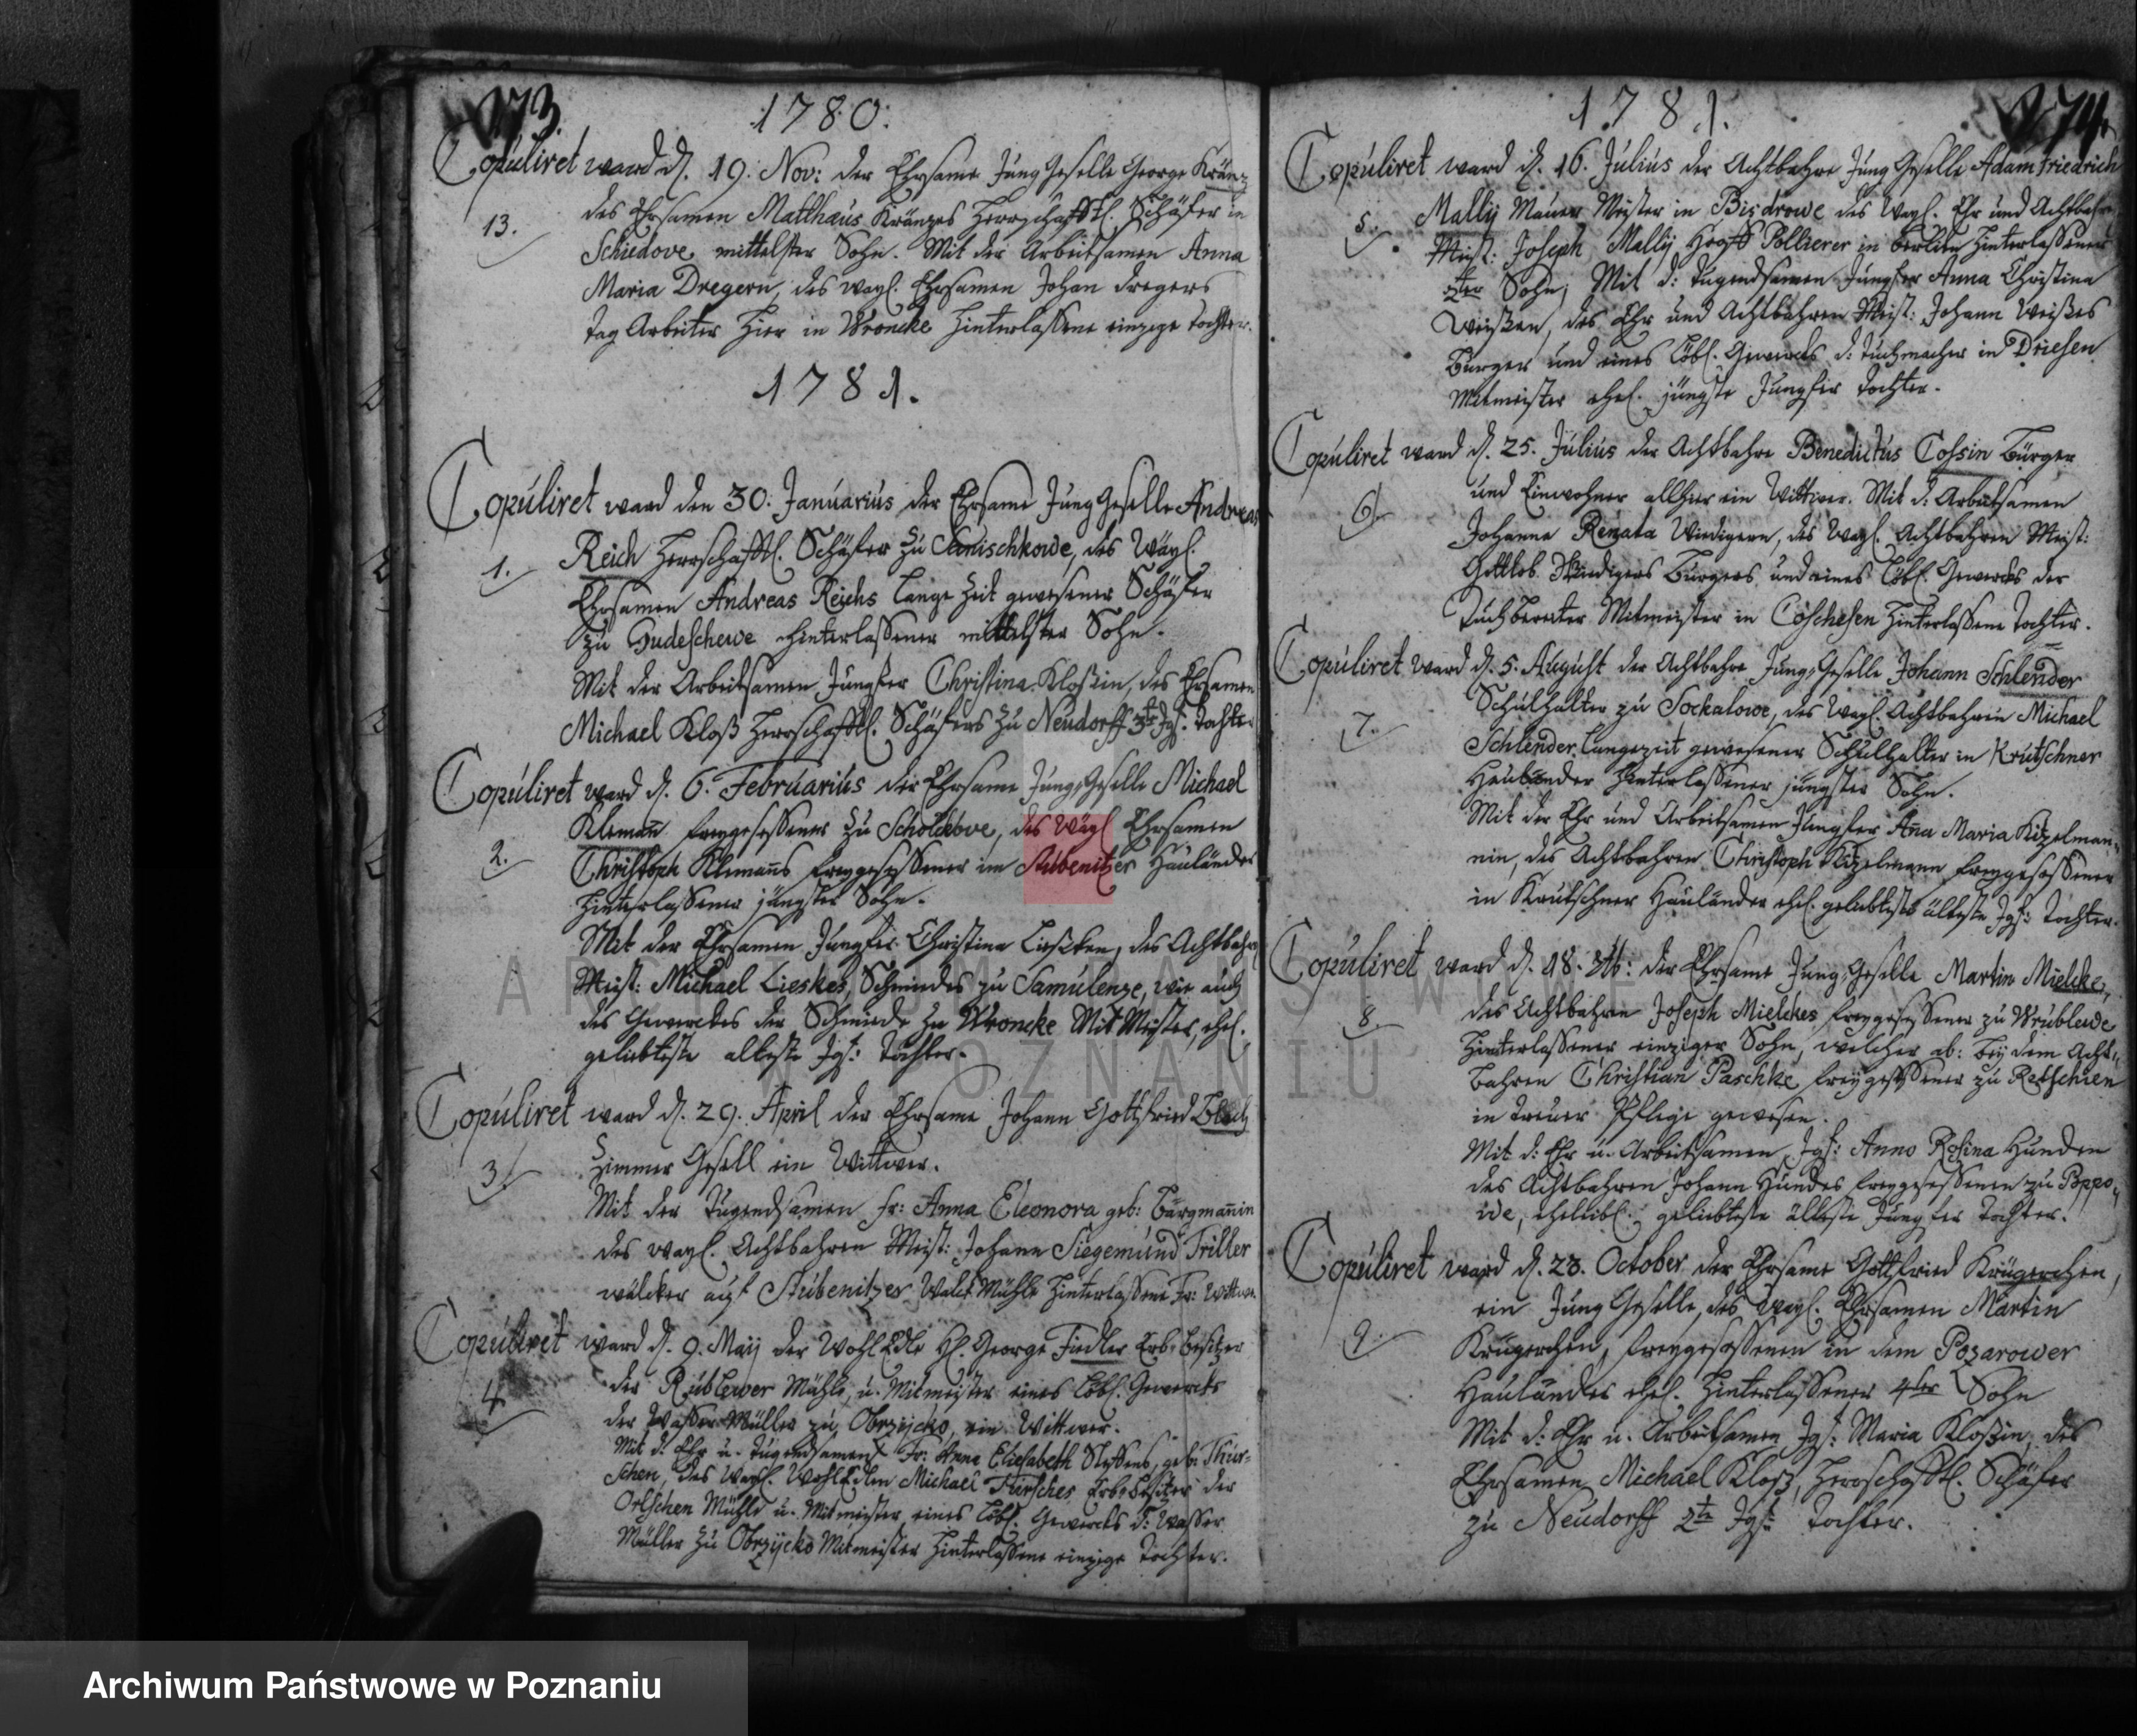 173.
1780.
Copuliret ward d. 19. Nov: der Ehrsame Jung Geselle George Krän-
13.
des Ehrsamen Matthäus Kränzes Herrschafftl. Schäfer in
Schiedove mittelster Sohn. Mit der Arbeitsamen Anna
Maria Dregern, des wayl. Ehrsamen Johan Dregers
Tag Arbeiter hier in Wroncke hinterlaßene einzige Tochter.
1781.
Copuliret ward den 30. Januarius der Ehrsame Jung Geselle Andreas
1.
Reich Herrschafftl. Schäfer zu , des Wayl.
Ehrsamen Andreas Reichs lange Zeit gewesener Schäfer
zu Gudeschewe hinterlaßener mittelster Sohn.
Mit der Arbeitsamen Jungfer Christina Kloßin, des Ehrsamen
Michael Kloß Herrschafftl. Schäfers zu Neudorff 3te Jgf. Tochter
Copuliret ward d. 6. Februarius der Ehrsame Jung Geselle Michael
2.
Klemañ freygeseßener zu , des Wayl. Ehrsamen
Christoph Klemañs freygeseßener im Stubenitzer Hauländer
hinterlaßener jüngster Sohn.
Mit der Ehrsamen Jungfer Christina Liescken, des Achtbahr
Meist: Michael Lieskes, Schmiedes zu Samulenze, wie auch
des Gewerckes der Schmiede zu Wroncke Mit Meister, ehel.
geliebteste älteste Jgf: Tochter.
Copuliret ward d. 29. April der Ehrsame Johann Gottfried
3.
Zimmer Gesell ein Wittwer.
Mit der Tugendsamen Fr: Anna Eleonora geb: Bärgmañin
des wayl. Achtbahren Meist: Johann Siegemund Triller
wälcker auf Stubenitzer Walck Mühle hinterlaßene Fr: Wittwe
Copuliret ward d. 9. Maij der WohlEdle H. George Fiedler Erb-besitzer
4.
der Rublewer Mühle, u. Mitmeister eines Löbl. Gewercks
der Waßer Müller zu Obrzycko, ein Wittwer.
Mit d. Ehr u. Tugendsamen Fr: Anna Eliesabeth , geb: Thür-
schen, des Wayl. WohlEdlen Michael Türsches Erb-besitzer der
Orlschen Mühle u. Mitmeister eines Löbl. Gewercks d: Waßer
Müller zu Obrzycko Mitmeister hinterlaßene einzige Tochter.
174.
1781.
Copuliret ward d. 16. Julius der Achtbahre Jung Geselle Adam Friedrich
5.
Mallij Mauer Meister in Bisdrowe des Wayl. Ehr und Achtbahren
Meist: Joseph Mallij Pollierer in Berlien hinterlaßener
2ter Sohn; Mit d: Tugendsamen Jungfer Anna Christina
Weißen, des Ehr und Achtbahren Meist: Johann Weißes
Bürger und eines Löbl. Gewercks d: Tuchmacher in Driesen
Mitmeister ehel. jüngste Jungfer Tochter.
Copuliret ward d. 25. Julius der Achtbahre Benedictus Cossin Bürger
6.
und Einwohner allhier ein Wittwer. Mit d: Arbeitsamen
Johanne Renata Wiedigern, des Wayl. Achtbahren Meist:
Gottlob Wiedigers Bürgers und eines Löbl. Gewercks der
Tuchbereiter Mitmeister in hinterlaßene Tochter.
Copuliret ward d. 5. August der Achtbahre Jung Geselle Johann Schlender
7.
Schulhalter zu Sockalowe, des Wayl. Achtbahren Michael
Schlender langezeit gewesener Schulhalter in Krutschner
Hauländer hinterlaßener jüngster Sohn.
Mit der Ehr und Arbeitsamen Jungfer Aña Maria Kitzelman-
nin, des Achtbahren Christoph Kitzelmann freygeseßener
in Krutschner Hauländer ehel. geliebteste älteste Jgf: Tochter.
Copuliret ward d. 18. : der Ehrsame Jung Geselle Martin Mielcke,
8.
des Achtbahren Joseph Mielckes freygeseßener zu Wrublewe
hinterlaßener einziger Sohn, welcher ab: bey dem Acht-
bahren Christian Paschke freygeseßener zu Retschien
in treuer Pflege gewesen.
Mit d: Ehr u. Arbeitsamen Jgf: Anna Rosina Hunden
des Achtbahren Johann Hundes freygeseßenen zu Poppo-
we, eheleibl. geliebteste älteste Jungfer Tochter.
Copuliret ward d. 23. October der Ehrsame Gottfried Krügerchen,
9.
ein Jung Geselle, des Wayl. Ehrsamen Martin
Krügerchen, freygeseßenen in dem Pozarower
Hauländer ehel. hinterlaßener 4ter Sohn
Mit d: Ehr u. Arbeitsamen Jgf: Maria Kloßin, des
Ehrsamen Michael Kloß, Herrschafftl. Schäfer
zu Neudorff 2te Jgf: Tochter.
ARCHIWUM PAŃSTWOWE
W POZNANIU
Archiwum Państwowe w Poznaniu